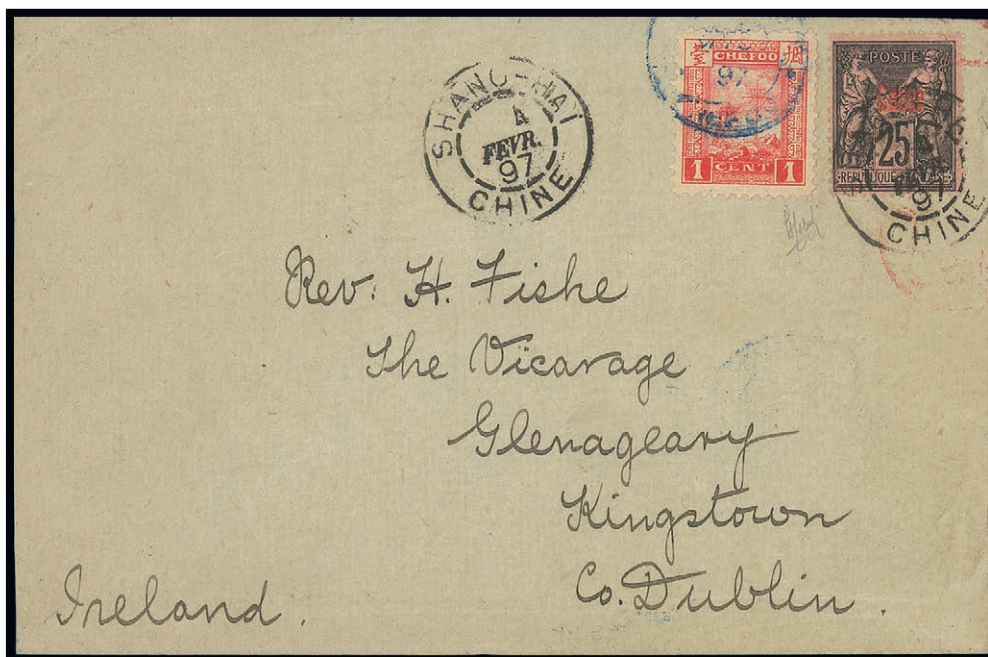 SHANG-HAÏ
4
FEVR.
97
CHINE
CHEFOO
烟
臺
97
1 CENT 1
POSTE
Chine
25
REPUBLIQUE FRANCAISE
97
CHINE
Rev. H. Fishe
The Vicarage
Glenageary
Kingstown
Co. Dublin.
Ireland.